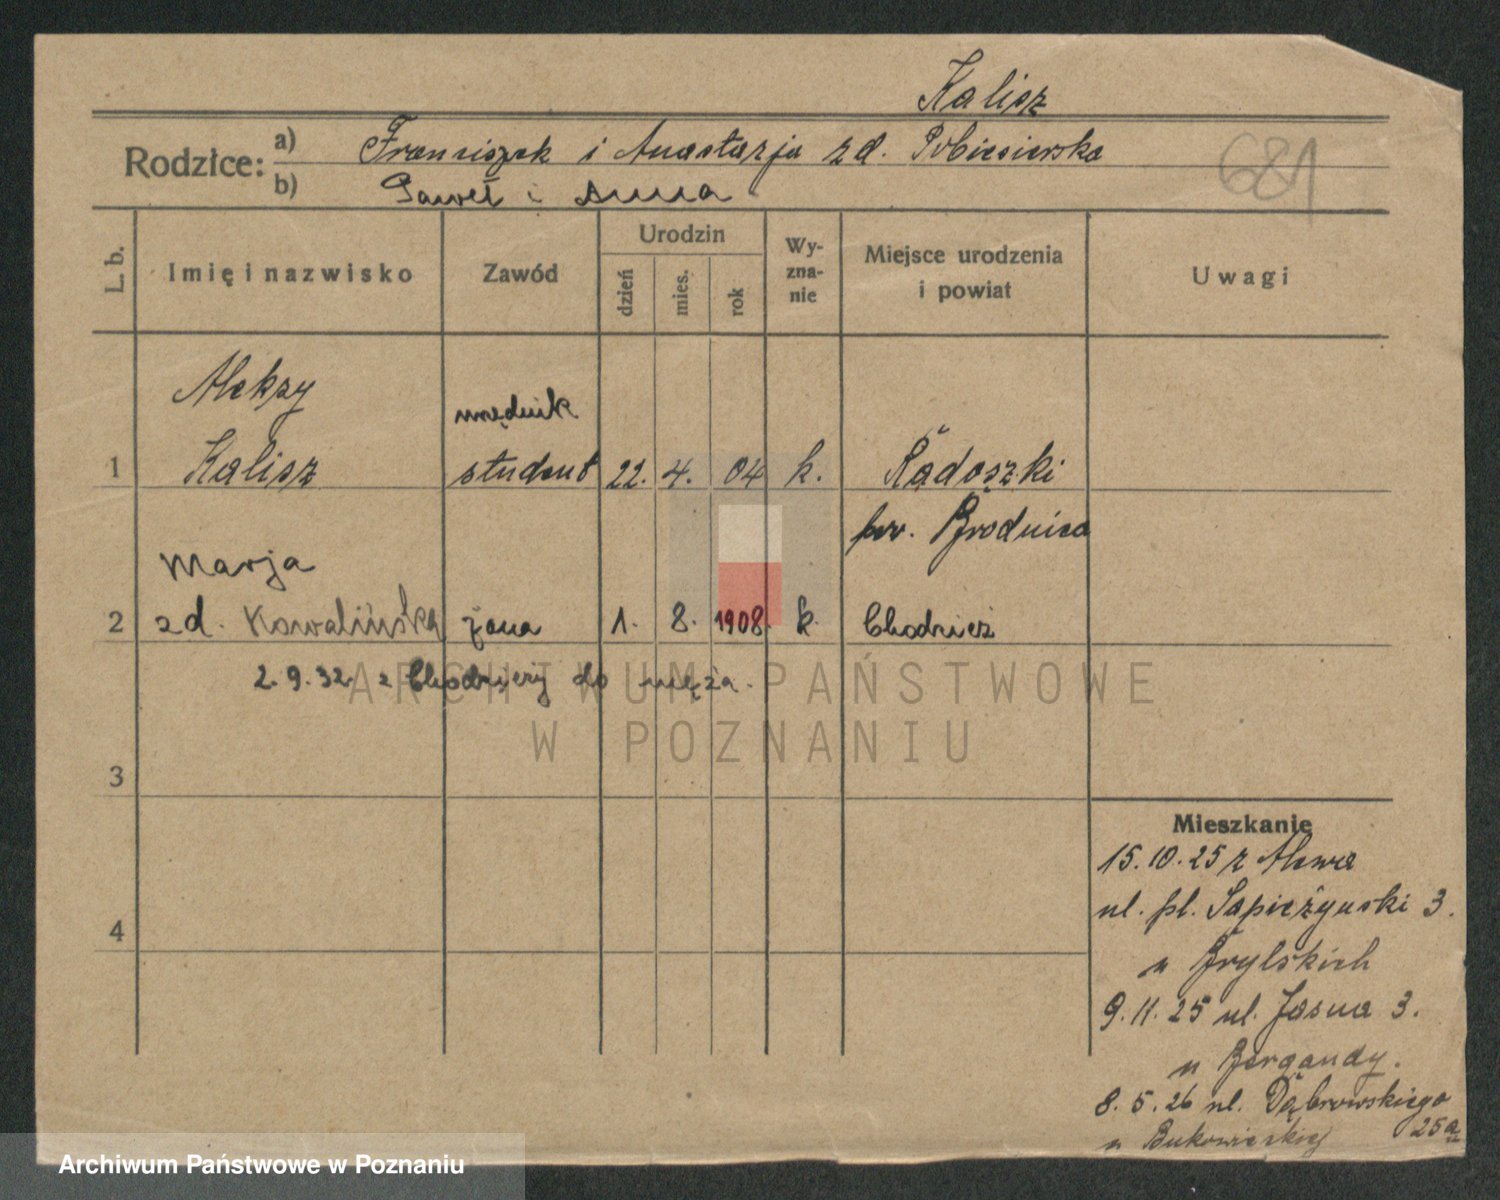 Kalisz
Rodzice: a) Franciszek i Anastazja zd. Pobiesierska
b) Paweł i Anna
681
L. b.
Imię i nazwisko
Zawód
Urodzin
dzień
mies.
rok
Wy-
zna-
nie
Miejsce urodzenia
i powiat
Uwagi
Aleksy
urzędnik
1 Kalisz student 22. 4. 04 k. Radoszki
pow. Brodnica
Marja
2 zd. Kowalińska żona 1. 8. 1908. k. Chodzież
2.9.32. z Chodzieży do męża.
ARCHIWUM PAŃSTWOWE
W POZNANIU
3
Mieszkanie
15.10.25 z
ul. pl. Sapieżyński 3.
4
u Brylskich
9.11.25 ul. Jasna 3.
u Bergandy.
8.5.26 ul. Dąbrowskiego
25a
u Bukowieckiej
Archiwum Państwowe w Poznaniu